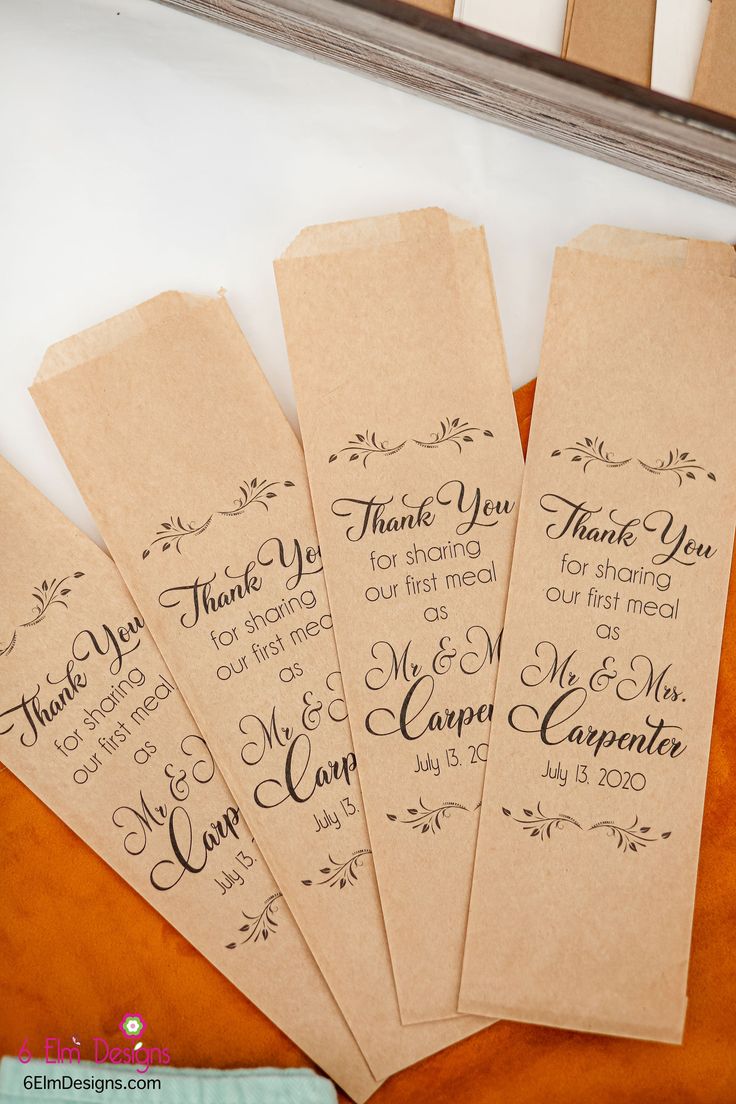 Thank You
for sharing
our first meal
as
Mr & M
Carp
July 13,
Thank You
for sharing
our first mea
as
Mr & M
Carp
July 13,
Thank You
for sharing
our first meal
as
Mr & M
Carpen
July 13, 20
Thank You
for sharing
our first meal
as
Mr & Mrs.
Carpenter
July 13, 2020
6 Elm Designs
6ElmDesigns.com